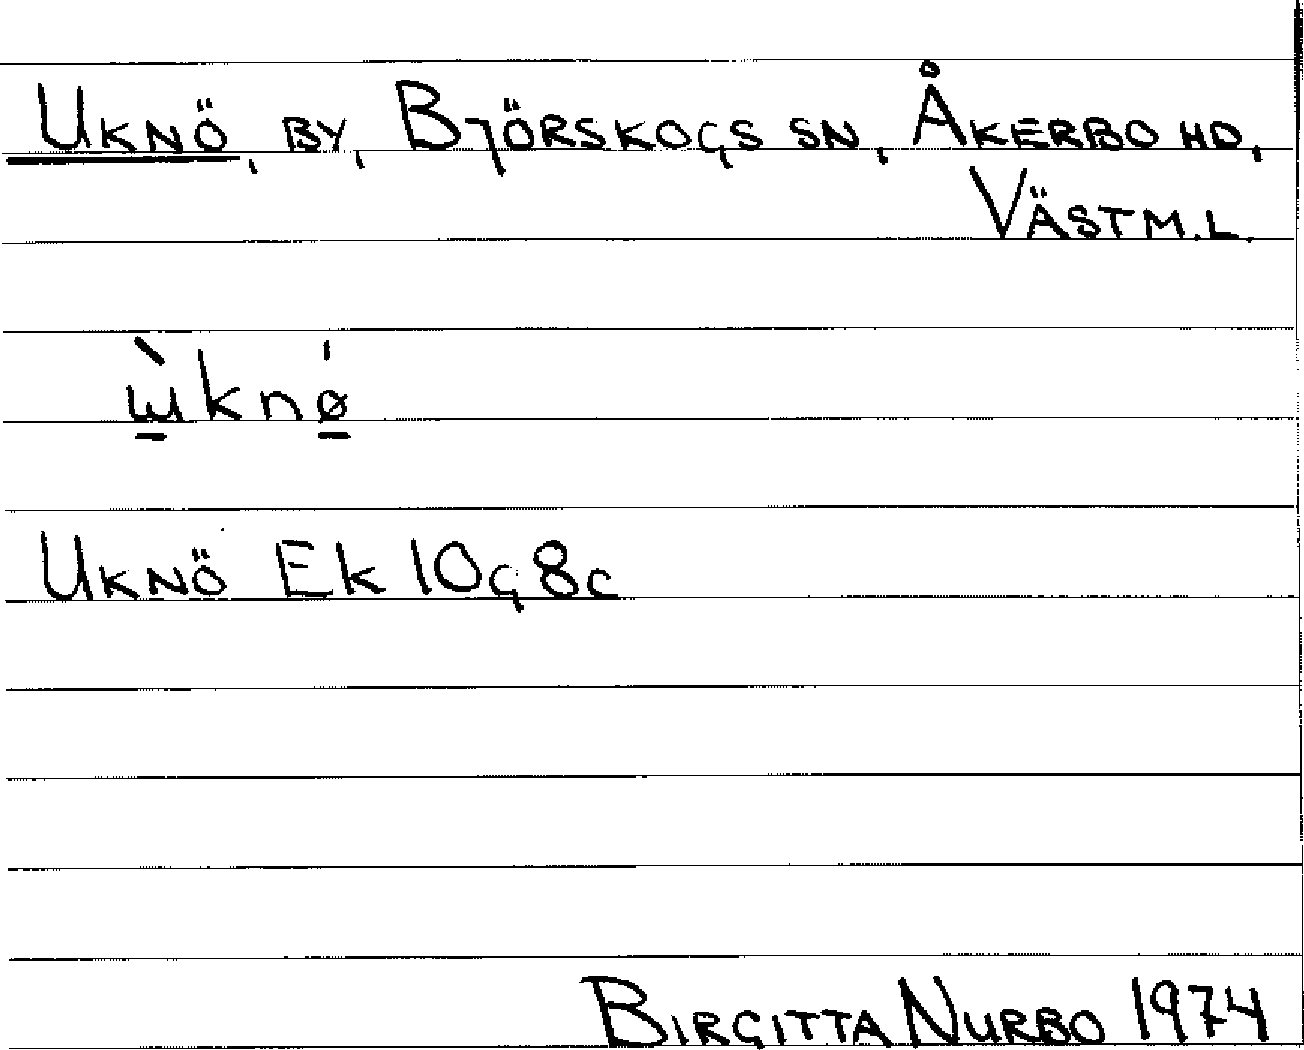 UKNÖ, BY, BJÖRSKOGS SN, ÅKERBO HD,
VÄSTM.L.
ɯ̠̀knǿ̠
UKNÖ Ek 10G8c
BIRGITTA NURBO 1974